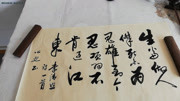 生當作人
傑死亦为
鬼雄至今
思项羽不
肯過江
東